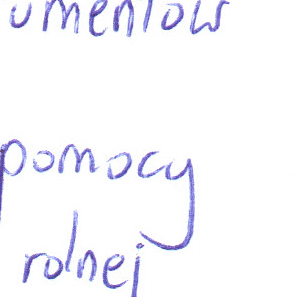 umentów
pomocy
rolnej